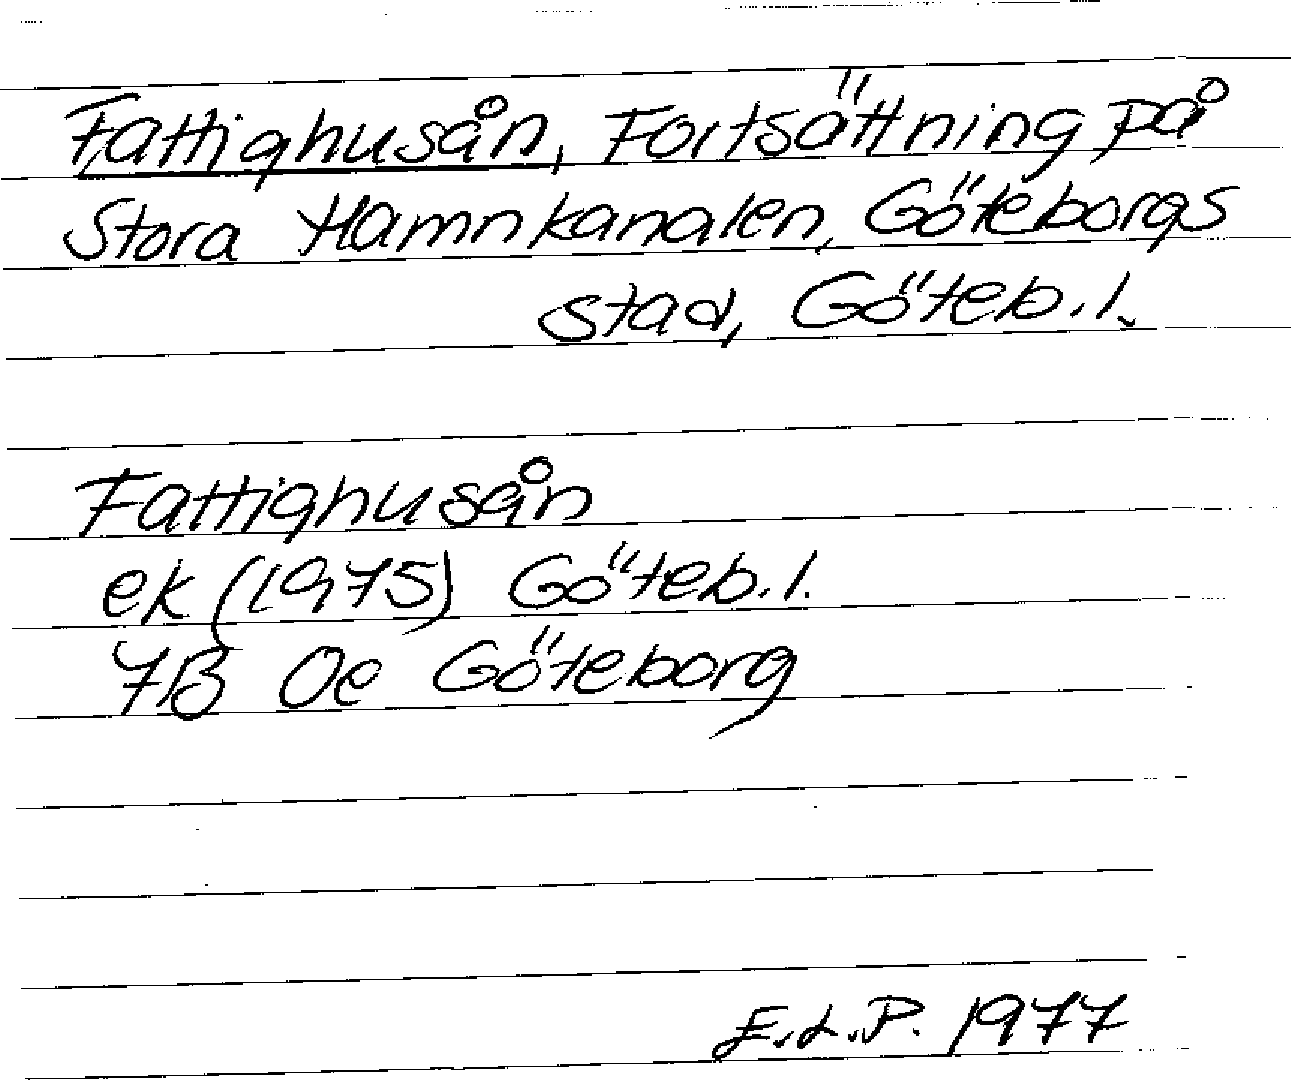 Fattighusån, Fortsättning på
Stora Hamnkanalen, Göteborgs
stad, Göteb.l.
Fattighusån
ek (1975) Göteb.l.
7B Oe Göteborg
E.L.P. 1977